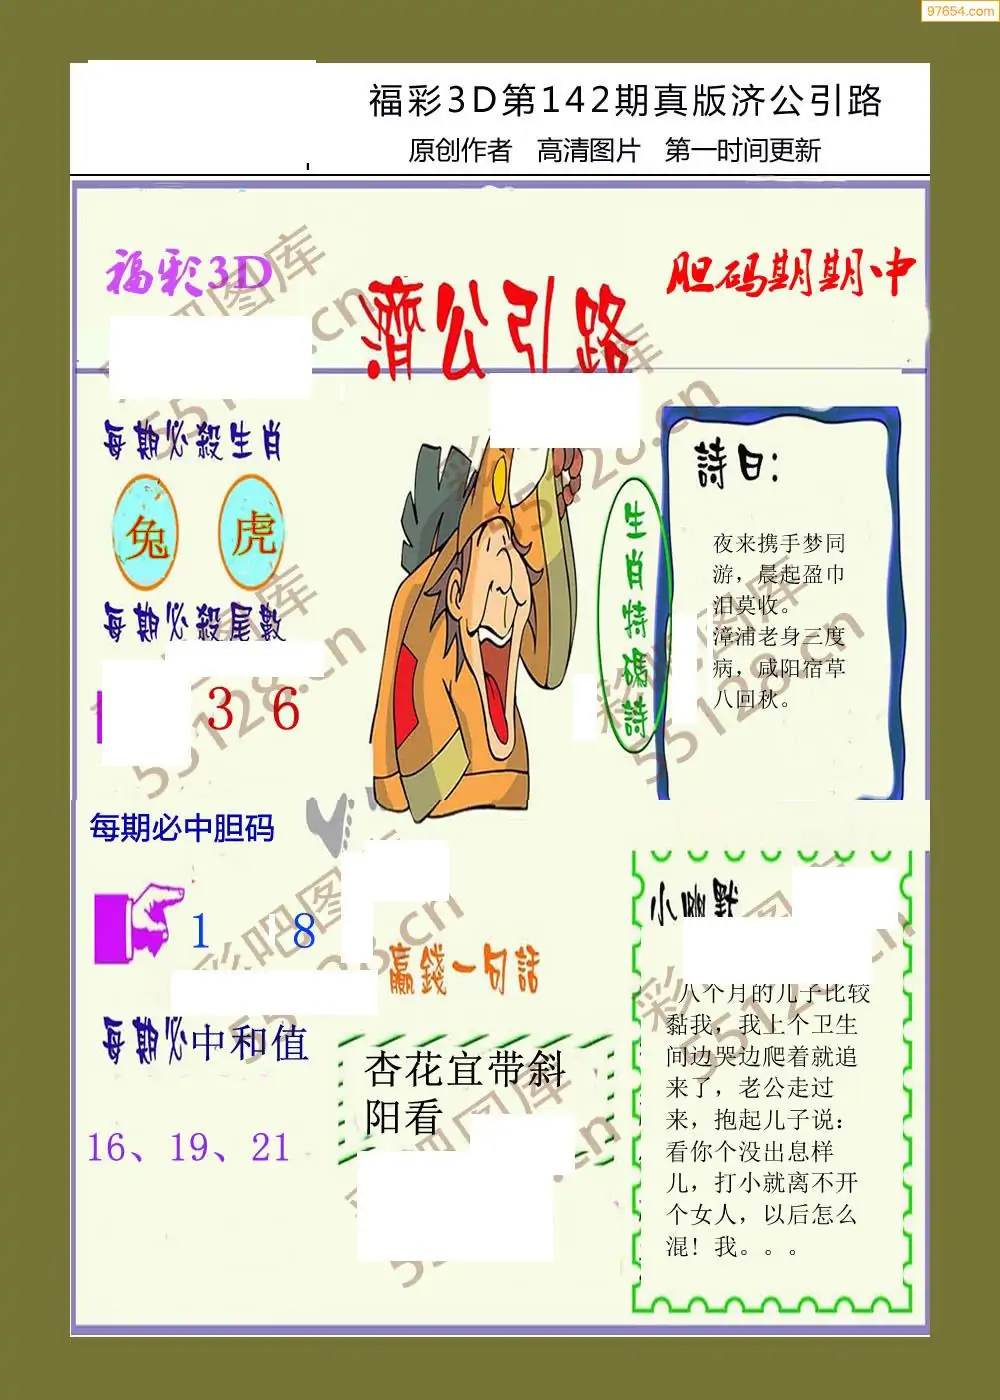 97654.com
福彩3D第142期真版济公引路
原创作者 高清图片 第一时间更新
福彩3D
濟公引路
胆码期期中
每期必殺生肖
兔 虎
每期必殺尾數
3 6
每期必中胆码
1 8
每期必中和值
16、19、21
生肖特碼詩
詩曰:
夜来携手梦同
游，晨起盈巾
泪莫收。
漳浦老身三度
病，咸阳宿草
八回秋。
赢錢一句話
杏花宜带斜
阳看
小幽默
八个月的儿子比较
黏我，我上个卫生
间边哭边爬着就追
来了，老公走过
来，抱起儿子说：
看你个没出息样
儿，打小就离不开
个女人，以后怎么
混！我。。。
彩吧图库
55128.cn